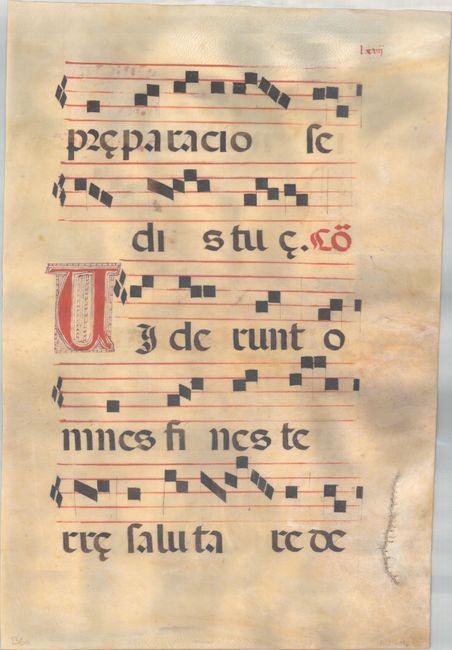 lxvij
pręparacio se
di s tu ę. Cō
VI de runt o
mnes fi nes te
rrę saluta re de